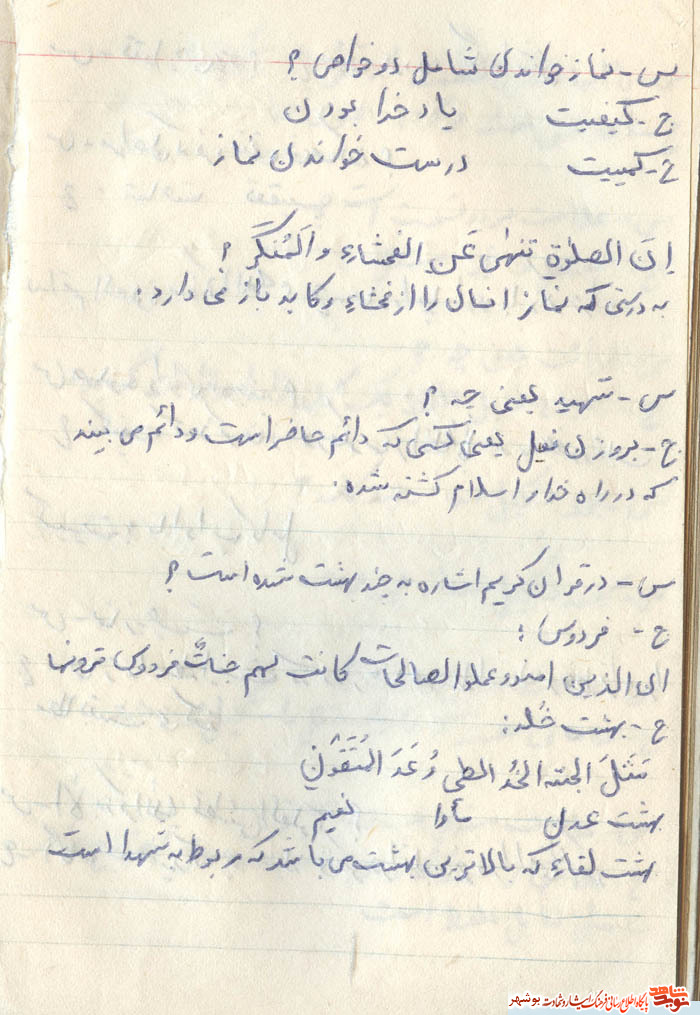 س - نماز خواندن شامل دو خواص ؟
ج - کیفیت یاد خدا بودن
ج - کمییت درست خواندن نماز
اِنَ الصلوةِ تنهٰی عَنِ الفحشاء و اَلمُنکَر ؟
به درستی که نماز انسان را از فحشاء و کا بد باز می دارد .
س - شهید یعنی چه ؟
ج - بروزن فعیل یعنی کسی که دائم حاضر است و دائم می بیند
که در راه خدا و اسلام کشته شده .
س - در قران کریم اشاره به چند بهشت شده است ؟
ج - فردوس :
ان الذین امنو و عملو الصالحات کانت لهم جناتٌ فردوس
ج - بهشت خُلد :
مَثَلَ الجنته الخُلد وُعَدَ المُتَقُونِ
بهشت عدن مأوا نعیم
بهشت لقاء که بالاترین بهشت می باشد که مربوط به شهدا است
نوید شاهد
پایگاه اطلاع رسانی فرهنگ ایثار و شهادت بوشهر